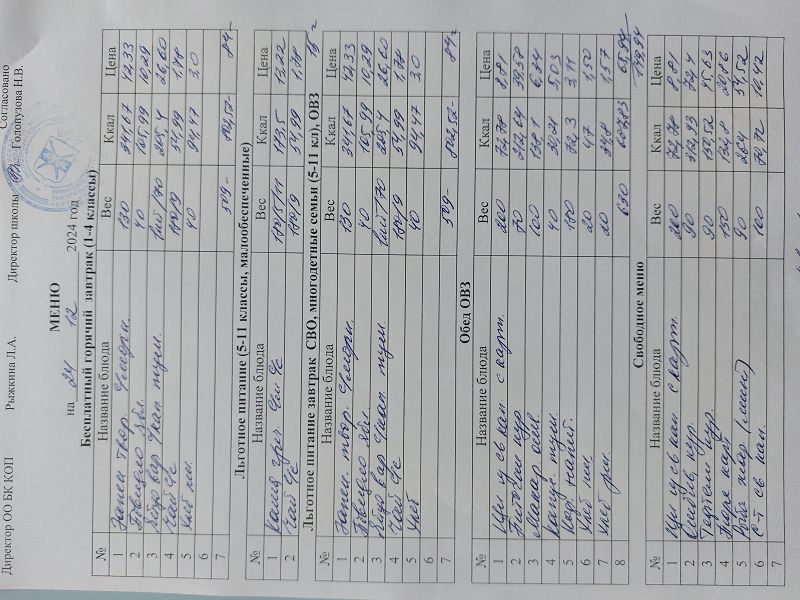 Директор ОО БК КОП Рыжкина Л.А. Директор школы Голопузова Н.В. Согласовано
МЕНЮ
на 24 12 2024 год
Бесплатный горячий завтрак (1-4 классы)
№ Название блюда Вес Ккал Цена
1 Запек твор. 130 341,67 42,33
2 Повидло ябл. 40 105,99 10,29
3 Яйцо вар туш. 1шт/70 205,4 26,60
4 Чай с/с 180/9 34,99 1,78
5 Хлеб пш. 40 94,47 3,0
6
7 509- 802,52- 84-
Льготное питание (5-11 классы, малообеспеченные)
№ Название блюда Вес Ккал Цена
1 Каша греч. 143,5 13,22
2 Чай с/с 180/9 34,99 1,78
Льготное питание завтрак СВО, многодетные семьи (5-11 кл), ОВЗ 15-
№ Название блюда Вес Ккал Цена
1 Запек. твор. 130 341,67 42,33
2 Повидло ябл. 40 105,99 10,29
3 Яйцо вар туш. 1шт/70 205,4 26,60
4 Чай с/с 180/9 34,99 1,78
5 Хлеб 40 94,47 3,0
6
7 509- 802,52- 84-
Обед ОВЗ
№ Название блюда Вес Ккал Цена
1 Щи из св кап с карт. 200 72,78 8,81
2 Биточки кур 70 212,64 39,58
3 Макар отв. 100 138,1
4 Капус туш. 40 5,03
5 напит. 180 72,3 3,11
6 Хлеб пш. 20 47 1,50
7 Хлеб рж. 20 1,57
8 630
Свободное меню
№ Название блюда Вес Ккал Цена
1 Щи из св кап с карт. 200 72,78 8,81
2 кур. 90
3 Тефтели кур. 90 45,63
4 Пюре карт 150 20,16
5 Рыба жар (минт) 90 54,52
6 с-т св кап. 100 70,72 10,42
7